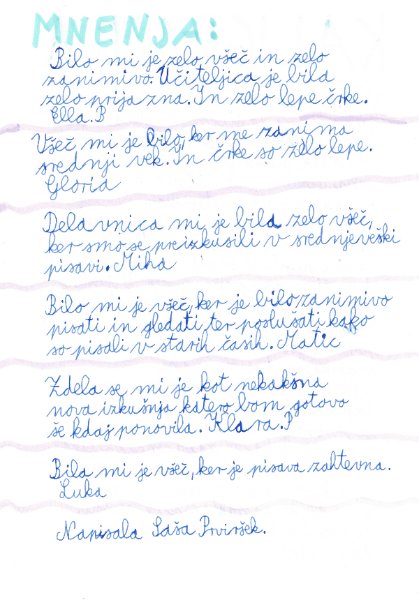 MNENJA:
Bilo mi je zelo všeč in zelo
zanimivo. Učiteljica je bila
zelo prijazna. In zelo lepe črke.
Ella.B
Všeč mi je bilo, ker me zanima
srednji vek. In črke so zelo lepe.
Gloria
Delavnica mi je bila zelo všeč,
ker smo se preizkusili v srednjeveški
pisavi. Miha
Bilo mi je všeč, ker je bilo zanimivo
pisati in gledati, ter poslušati kako
so pisali v starih časih. Matic
Zdela se mi je kot nekakšna
nova izkušnja katero bom gotovo
še kdaj ponovila. Klara.P
Bila mi je všeč, ker je pisava zahtevna.
Luka
Napisala Saša Prviršek.